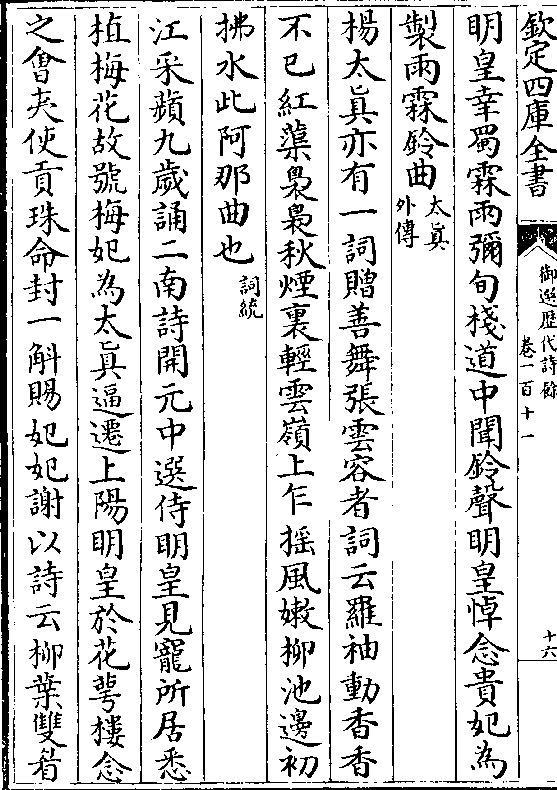 欽定四庫全書
御選歷代詩餘
卷一百十一
十六
明皇幸蜀霖雨彌旬棧道中聞鈴聲明皇悼念貴妃為
製雨霖鈴曲太真外傳
楊太真亦有一詞贈善舞張雲容者詞云羅袖動香香
不已紅蕖裊裊秋煙裏輕雲嶺上乍揺風嫩柳池邊初
拂水此阿那曲也詞統
江采蘋九歲誦二南詩開元中選侍明皇見寵所居悉
植梅花故號梅妃為太真逼遷上陽明皇於花萼樓念
之會夷使貢珠命封一斛賜妃妃謝以詩云柳葉雙眉